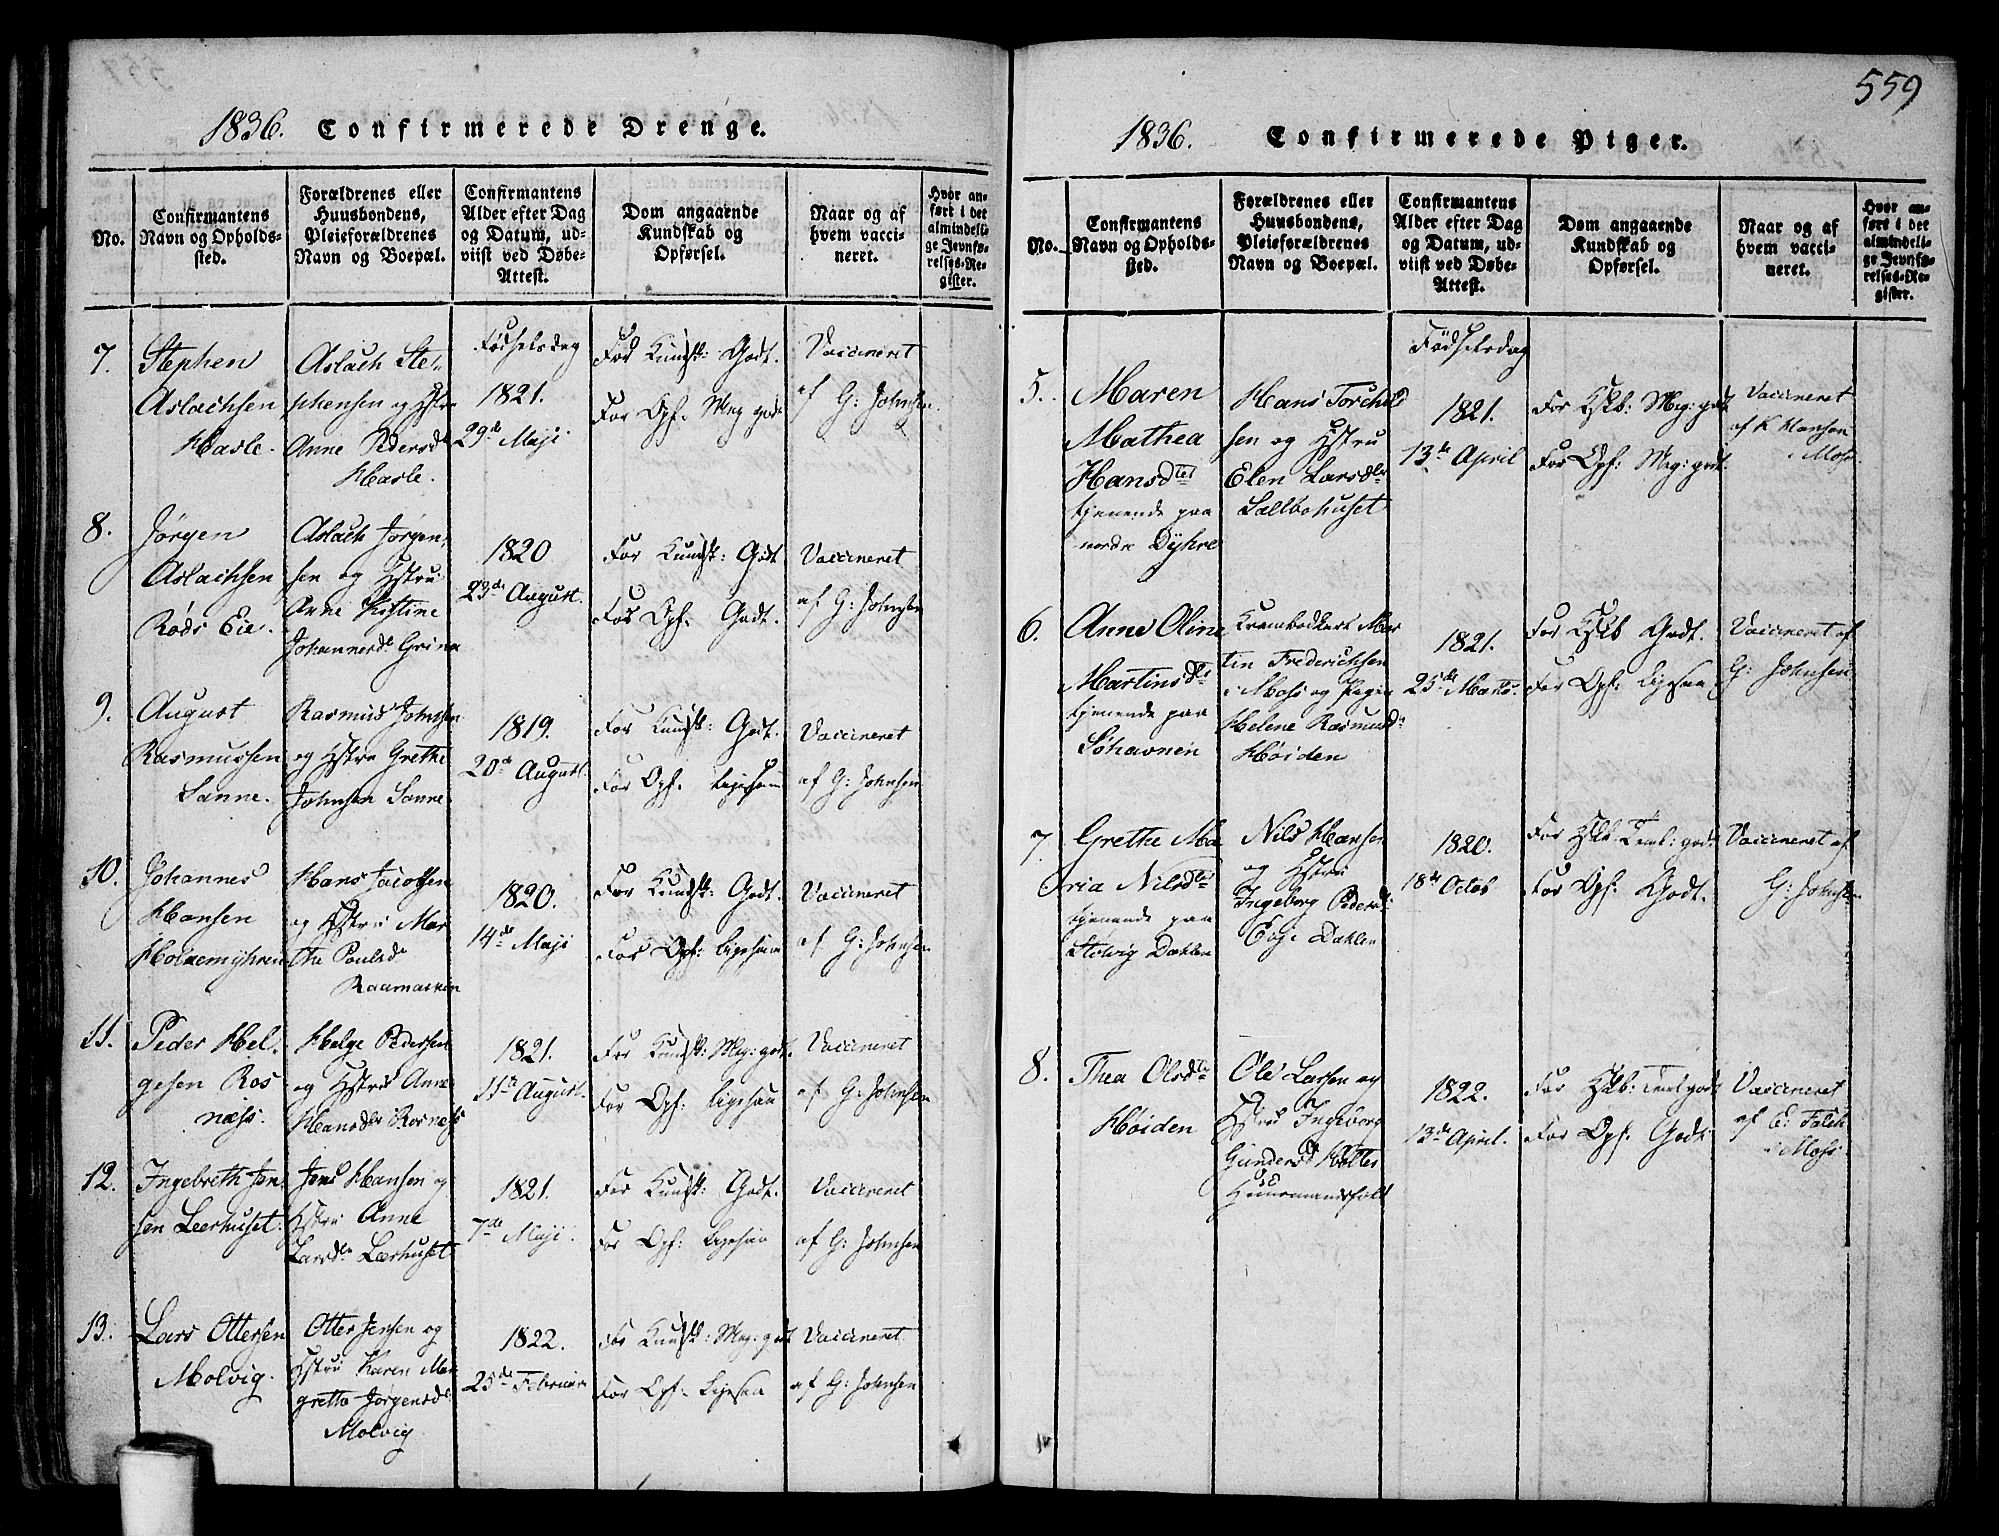 1836. Confirmerede Drenge.
No.
Confirmantens
Navn og Opholds-
sted.
Forældrenes eller
Huusbondens,
Pleieforældrenes
Navn og Boepæl.
Confirmantens
Alder efter Dag
og Datum, ud-
viist ved Døbe-
Attest.
Dom angaaende
Kundskab og
Opførsel.
Naar og af
hvem vacci-
neret.
Hvor an-
ført i det
almindeli-
ge Jevnfø-
relses-Re-
gister.
7.
Stephen
Aslachsen
Hasle.
Aslach Ste-
phensen og Hstru
Anne Pedersd
Hasle.
Fødselsdag
1821.
29de Maji.
For Kundsk: Godt.
For Opf. Meg godt
Vaccineret
af G: Johnsen.
8.
Jørgen
Aslachsen
Røds Eie.
Aslach Jørgen-
sen og Hstru
Anne Kistine
Johannesd Grina
1820
23de August.
For Kundsk: Godt
For Opf. Godt.
Vaccineret
af G: Johnsen
9.
August
Rasmussen
Sanne.
Rasmus Johnsen
og Hstru Grethe
Johnsen Sanne.
1819.
20de August.
For Kundsk: Godt.
For Opf. ligesaa
Vaccineret
af G: Johnsen
10.
Johannes
Hansen
Holnemyhren
Hans Jacobsen
og Hstru Mar
the Poulsd
Raamasken
1820.
14de Maji
For Kundsk: Godt.
For Opf: ligesaa
Vaccineret
af G: Johnsen
11.
Peder Hel-
gesen Ros
næss.
Helge Pedersen
og Hstru Anne
Hansdtr Rosnæss
1821.
11te August.
For Kundsk: Meg: godt.
For Opf: ligesaa
Vaccineret
af G: Johnsen
12.
Ingebreth Jen-
sen Leerhuset.
Jens Hansen og
Hstru Anne
Larsdtr Lærhuset
1821.
7de Maji.
For Kundsk: Godt.
For Opf: ligesaa
Vaccineret
af G: Johnsen
13.
Lars Ottersen
Molvig.
Otter Jensen og
Hstru Karen Mar
grethe Jørgensd
Molvig
1822.
25de Februar
For Kundsk: Meg: godt
For Opf. ligesaa
Vaccineret
af G: Johnsen
559
1836. Confirmerede Piger.
No.
Confirmantens
Navn og Opholds-
sted.
Forældrenes eller
Huusbondens,
Pleieforældrenes
Navn og Boepæl.
Confirmantens
Alder efter Dag
og Datum, ud-
viist ved Døbe-
Attest.
Dom angaaende
Kundskab og
Opførsel.
Naar og af
hvem vacci-
neret.
Hvor an-
ført i det
almindeli-
ge Jevnfø-
relses-Re-
gister.
5.
Maren
Mathea
Hansdter
tjenende paa
nordre Dyhre
Hans Torchild
sen og Hstru
Elen Larsdtr
Saltbohuset
Fødselsdag
1821.
13de April
For Kskb: Meg: godt
For Opf: Meg: godt.
Vaccineret
af K Hansen
i Moss.
6.
Anne Oline
Martinsdtr
tjenende paa
Søhavnen
Mar
tin Frederichsen
i Moss og Pigen
Helene Rasmusdr
Høiden
1821.
25de Marts.
For Kskb Godt.
For Opf: ligesaa
Vaccineret af
G: Johnsen
7.
Grethe Ma
ria Nilsdtr
tjenende paa
Stolvig Dahlen
Nils Hansen
og Hstru
Ingeborg Pedersd
Eeg: Dahlen
1820.
18de Octob
For Kskb Teml: godt
For Opf. Godt.
Vaccineret af
G: Johnsen
8.
Thea Olsdtr
Høiden
Ole Larsen og
Hstru Ingeborg
Gundersd
1822.
13de April.
For Kskb: Teml godt
For Opf. Godt.
Vaccineret
af E: Falch
i Moss.